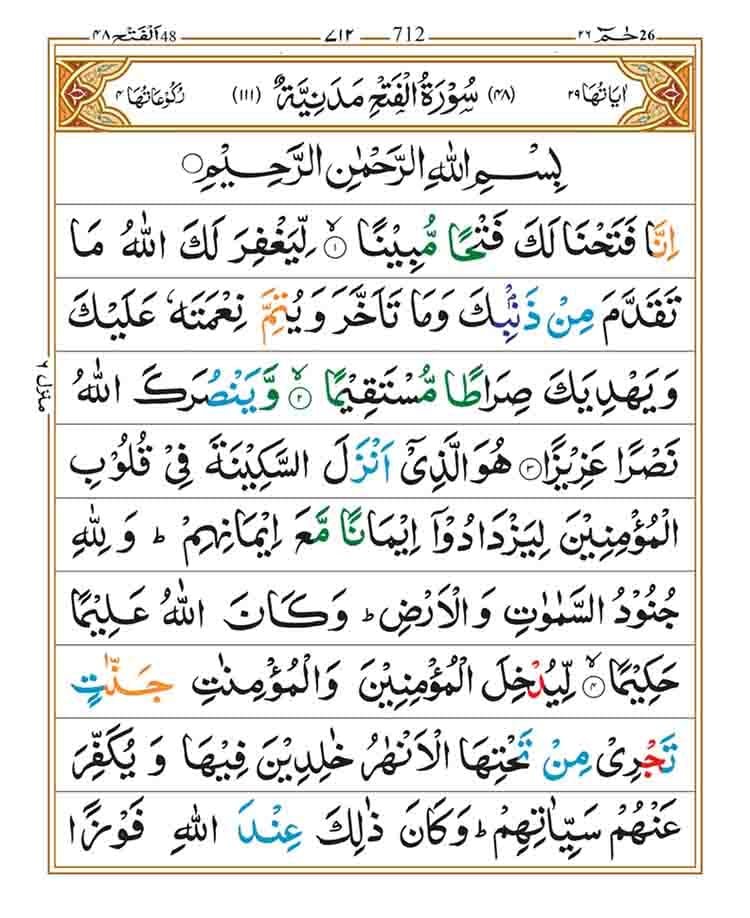 26 حٰمٓ ٢٦ 712 ٧١٢ 48 اَلْفَتْح ٤٨
اٰيَاتُهَا ٢٩ (٤٨) سُوْرَةُ الْفَتْحِ مَدَنِيَّةٌ (١١١) رُكُوْعَاتُهَا ٤
بِسْمِ اللّٰهِ الرَّحْمٰنِ الرَّحِيْمِ۝
اِنَّا فَتَحْنَا لَكَ فَتْحًا مُّبِيْنًا ۙ‏﴿۱﴾ لِّيَغْفِرَ لَكَ اللّٰهُ مَا
تَقَدَّمَ مِنْ ذَنْۢبِكَ وَمَا تَاَخَّرَ وَيُتِمَّ نِعْمَتَهٗ عَلَيْكَ
وَيَهْدِيَكَ صِرَاطًا مُّسْتَقِيْمًا ۙ‏﴿۲﴾ وَّيَنْصُرَكَ اللّٰهُ
نَصْرًا عَزِيْزًا ﴿۳﴾ هُوَ الَّذِىْۤ اَنْزَلَ السَّكِيْنَةَ فِىْ قُلُوْبِ
الْمُؤْمِنِيْنَ لِيَزْدَادُوْۤا اِيْمَانًا مَّعَ اِيْمَانِهِمْ ؕ وَلِلّٰهِ
جُنُوْدُ السَّمٰوٰتِ وَالْاَرْضِ ؕ وَكَانَ اللّٰهُ عَلِيْمًا
حَكِيْمًا ۙ‏﴿۴﴾ لِّيُدْخِلَ الْمُؤْمِنِيْنَ وَالْمُؤْمِنٰتِ جَنّٰتٍ
تَجْرِىْ مِنْ تَحْتِهَا الْاَنْهٰرُ خٰلِدِيْنَ فِيْهَا وَيُكَفِّرَ
عَنْهُمْ سَيِّاٰتِهِمْ ؕ وَكَانَ ذٰلِكَ عِنْدَ اللّٰهِ فَوْزًا
منزل ٦